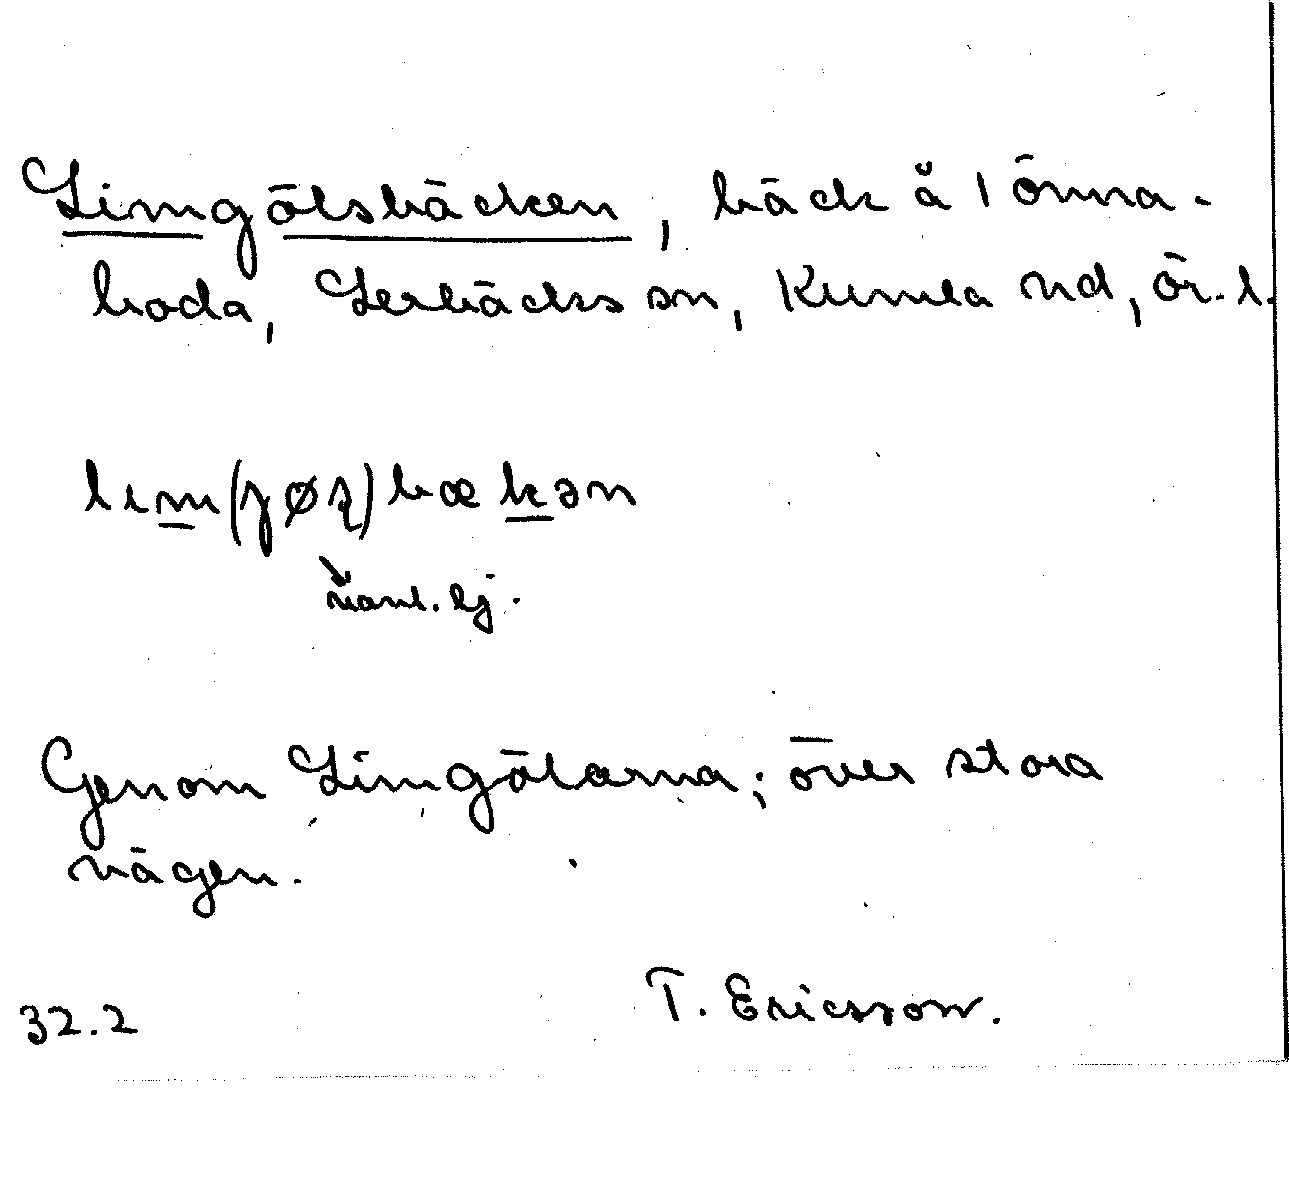 Limgölsbäcken, bäck å 1 önna-
boda, Lerbäcks sn, Kumla hd, Ör. l.
lim(jøɽ)bækən
vanl. lj.
Genom Limgölarna; över stora
vägen.
32.2 T. Ericsson.